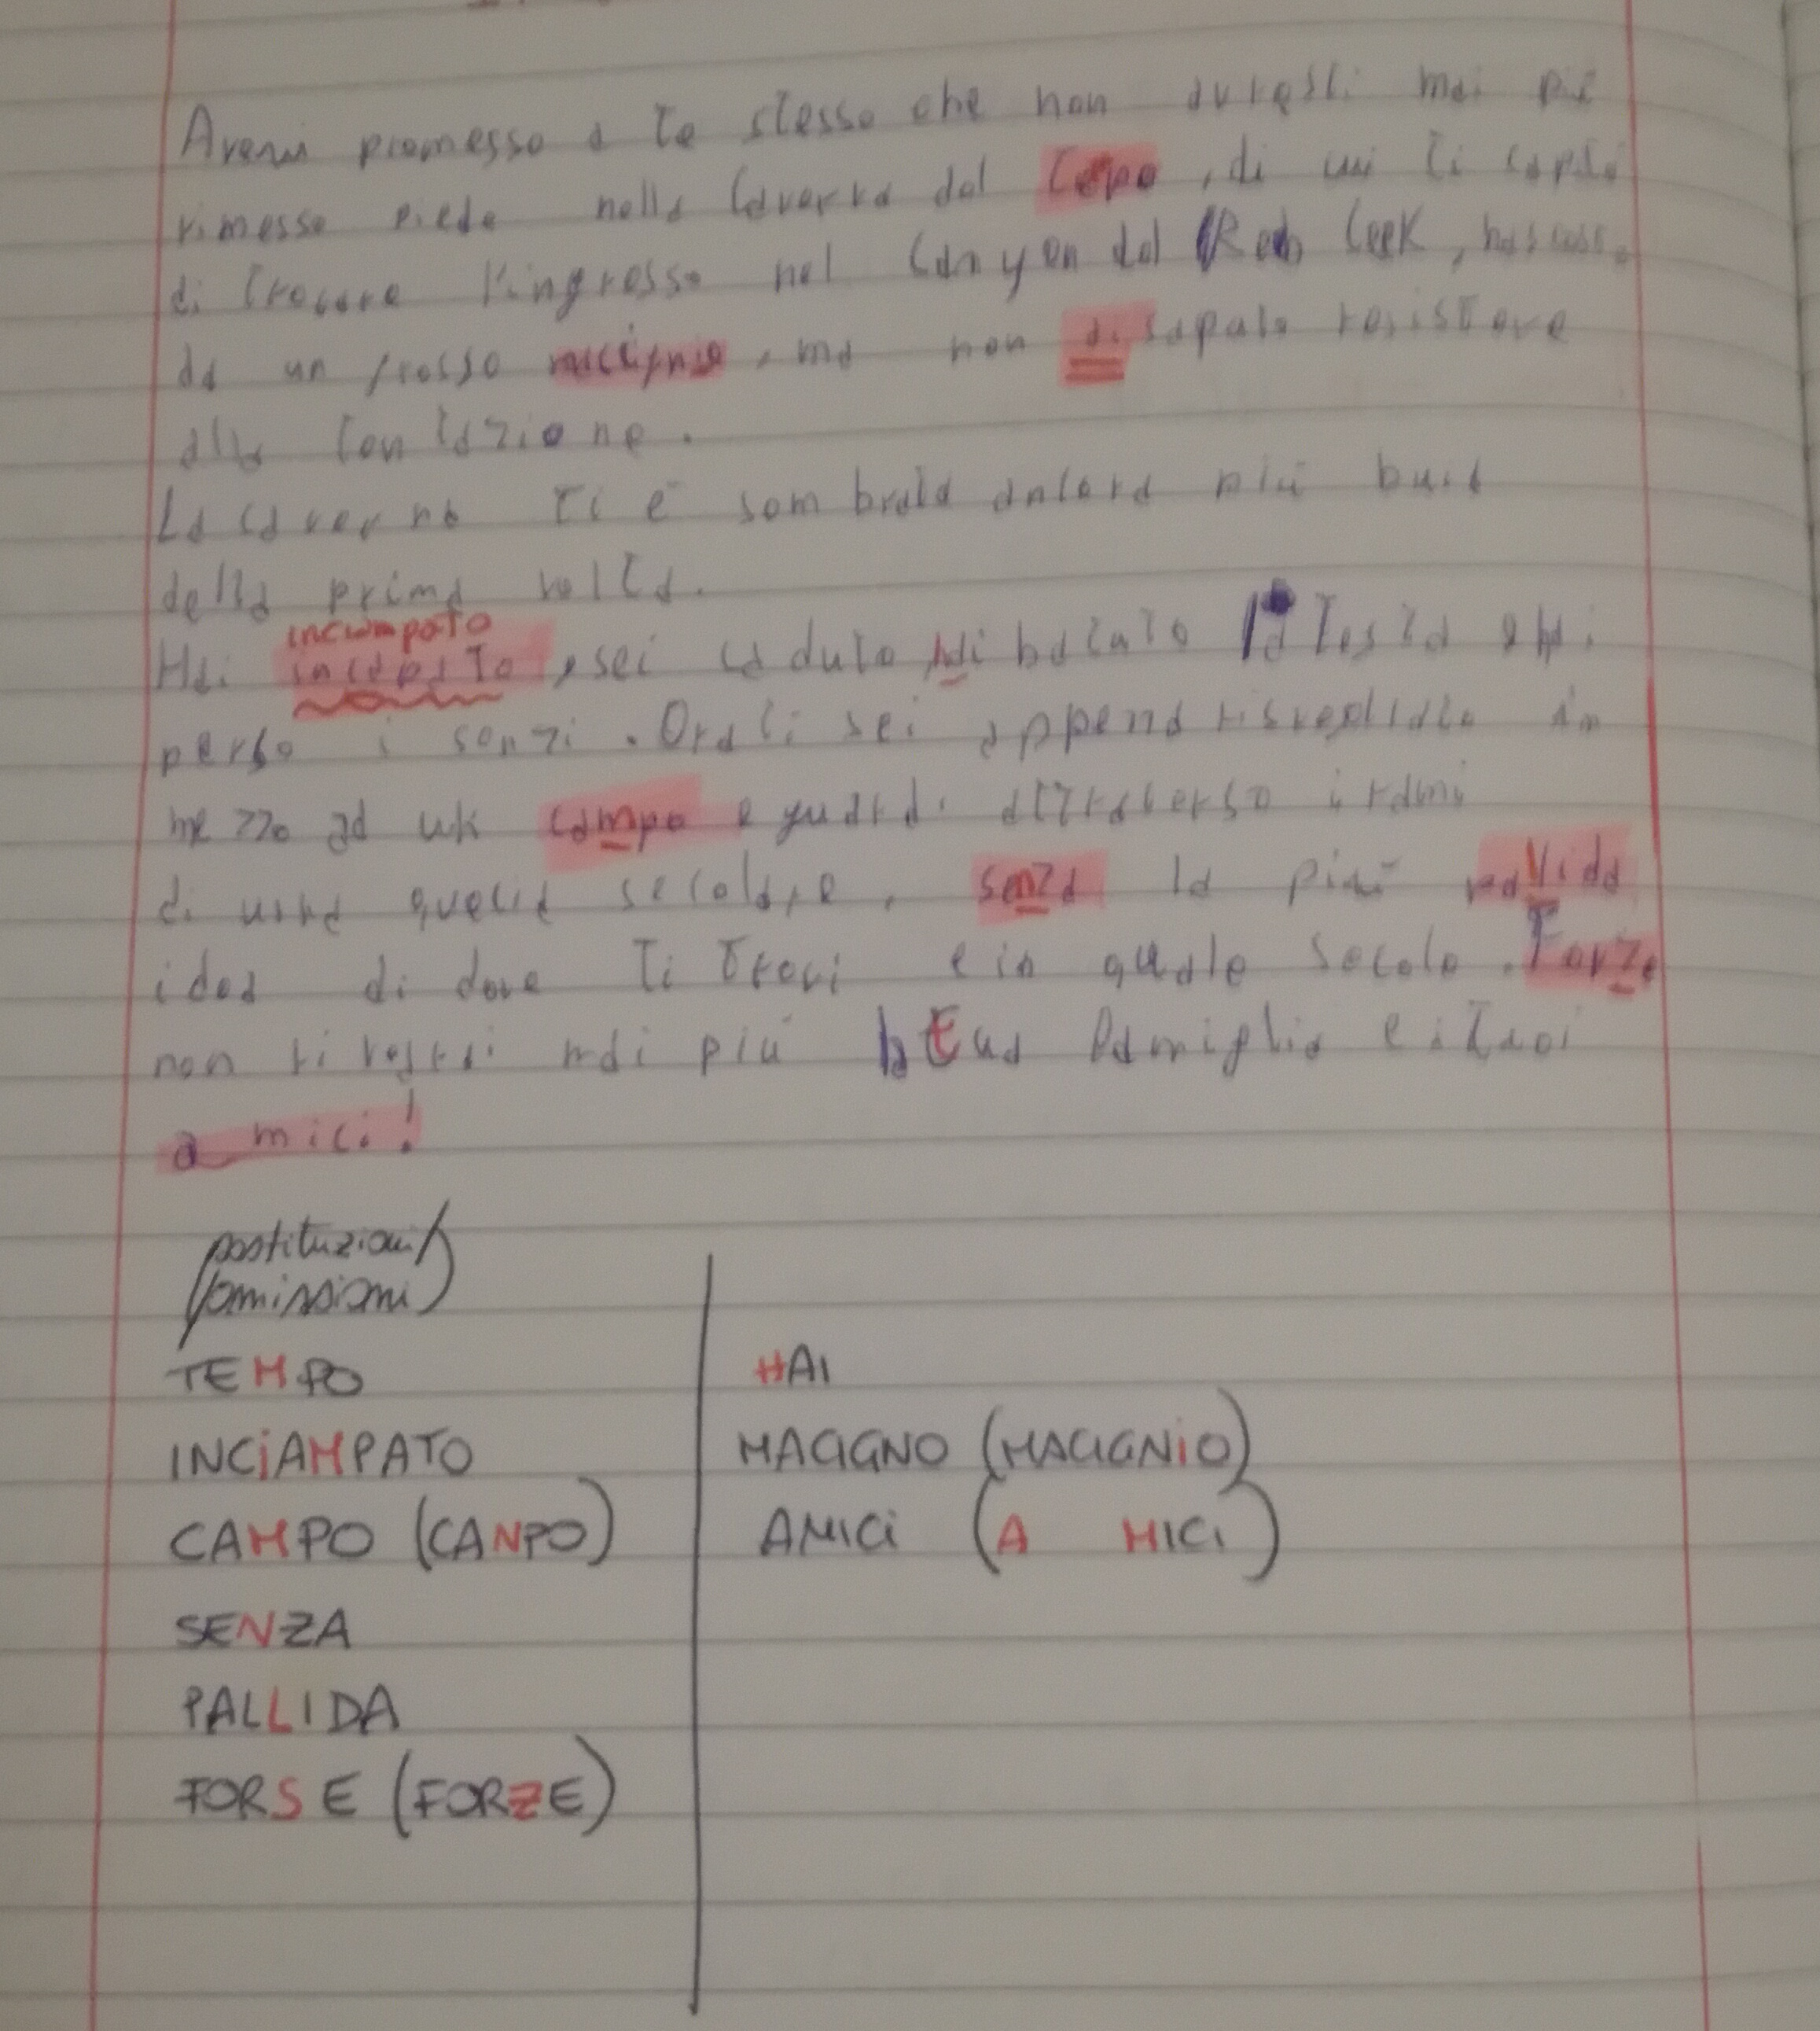 Avevi promesso a te stesso che non avresti mai più
rimesso piede nella Caverna del Tepo, di cui ti capitò
di trovare l'ingresso nel Canyon del Red Ceek, nascosto
da un grosso macignio, ma non ai saputo resistere
alla tentazione.
La caverna ti è sembrata ancora più buia
della prima volta.
inciampato
Hai incapato, sei caduto, hai batuto la testa e hai
perso i sensi. Ora ti sei appena risvegliato in
mezzo ad un campo e guardi attraverso i rami
di una quercia secolare, senza la più pallida
idea di dove ti trovi e in quale secolo. Forze
non rivestrai mai più la tua famiglia e i tuoi
a mici!
sostituzioni
omissioni
TEMPO
INCiAMPATO
CAMPO (CANPO)
SENZA
PALLIDA
FORSE (FORZE)
HAI
MACIGNO (MACIGNiO)
AMICi (A MICI)